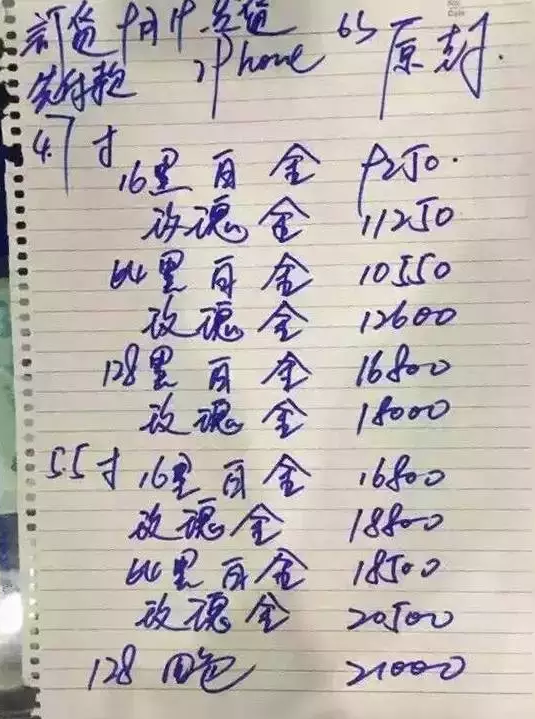 订货 9月19号 iPhone 6s 原封
先付款
4.7寸
16黑白金 9250.
玫瑰金 11250
64黑白金 10550
玫瑰金 12600
128黑白金 16800
玫瑰金 18000
5.5寸 16黑白金 16800
玫瑰金 18800
64黑白金 18500
玫瑰金 20500
128 四色 21000